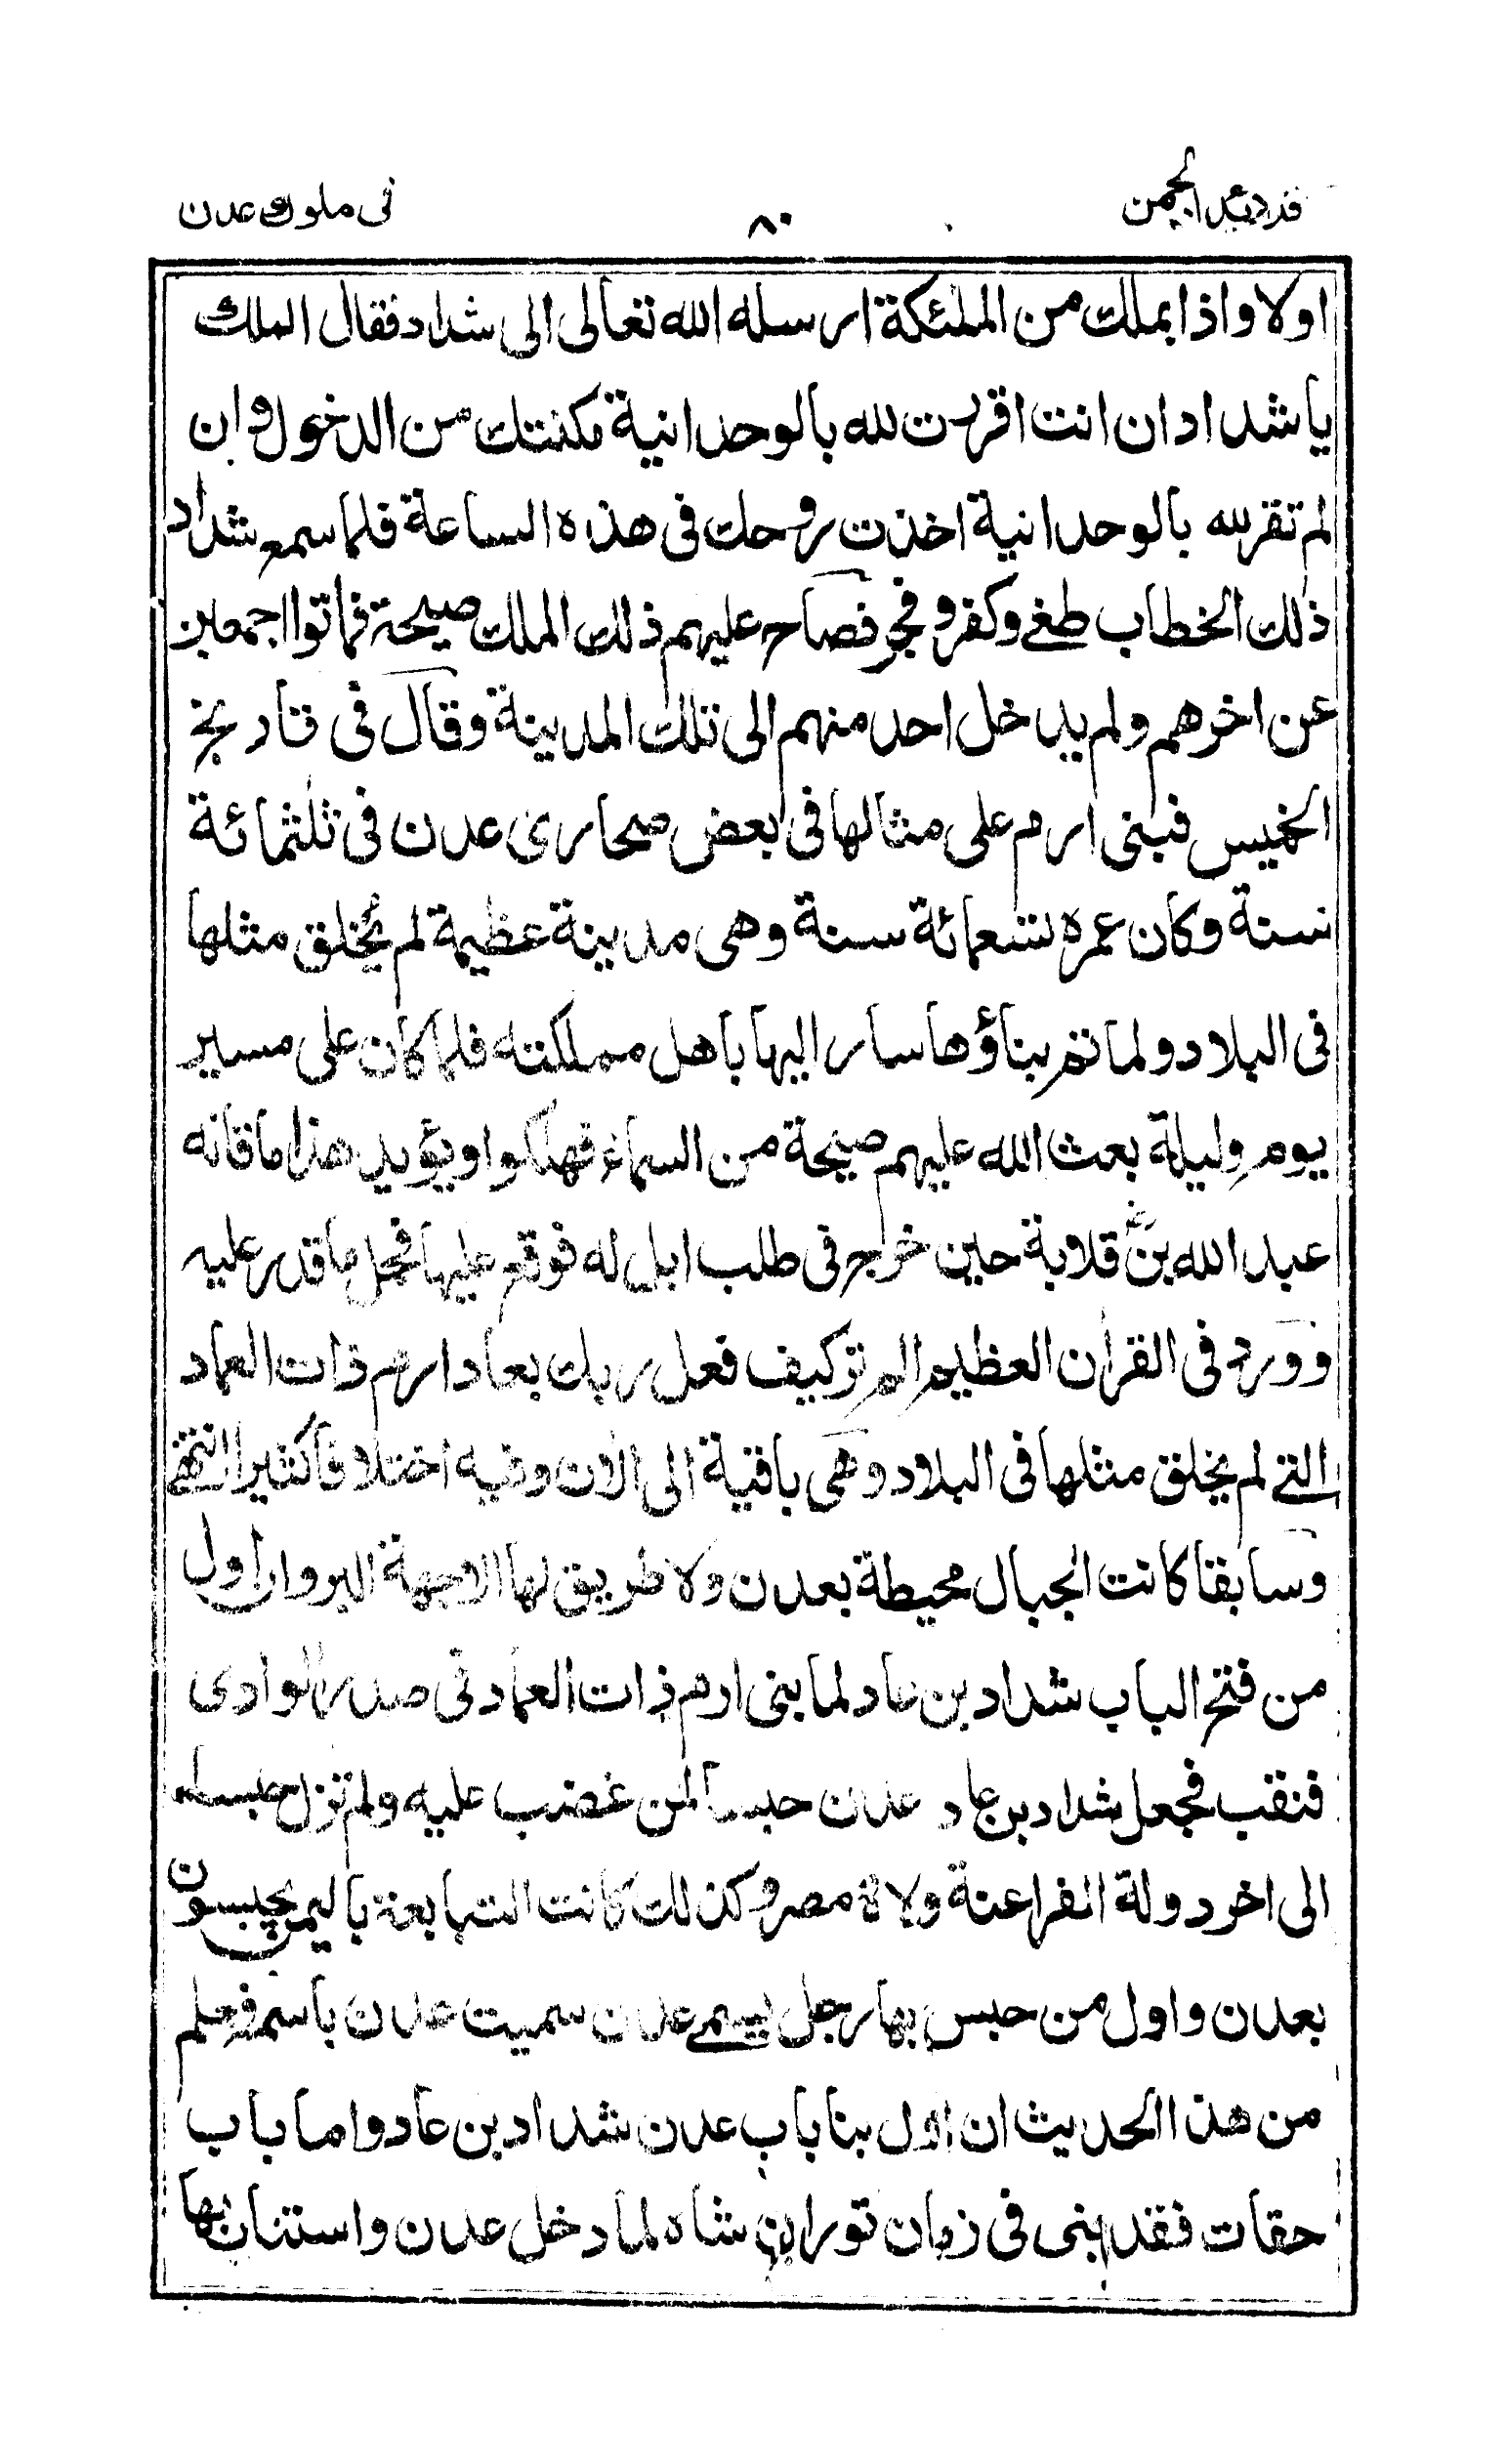 في ملوك عدن
٨٠
اولا واذا بملك من الملئكة ارسله الله تعالى الى شداد فقال الملك
يا شداد ان انت اقررت لله بالوحدانية مكنتك من الدخول وان
لم تقر لله بالوحدانية اخذت روحك في هذه الساعة فلما سمع شداد
ذلك الخطاب طغى وكفر وفجر فصاح عليهم ذلك الملك صيحة فماتوا اجمعين
عن اخرهم ولم يدخل احد منهم الى تلك المدينة وقال في تاريخ
الخميس فبنى ارم على مثالها في بعض صحارى عدن في ثلثمائة
سنة وكان عمره تسعمائة سنة وهي مدينة عظيمة لم يُخلق مثلها
في البلاد ولما تم بناؤها سار اليها باهل مملكته فلما كان على مسير
يوم وليلة بعث الله عليهم صيحة من السماء فهلكوا ويؤيد هذا ما قاله
عبد الله بن قلابة حين خرج في طلب ابل له فوقع عليها فحمل ما قدر عليه
وورد في القرأن العظيم الم تر كيف فعل ربك بعاد ارم ذات العماد
التي لم يخلق مثلها في البلاد وهي باقية الى الأن وفيه اختلافا كثيرا انتهى
وسابقا كانت الجبال محيطة بعدن ولا طريق لها الا جهة البر وان اول
من فتح الباب شداد بن عاد لما بنى ارم ذات العماد في صدر الوادى
فنقب فجعل شداد بن عاد عدن حبسا لمن غضب عليه ولم تزل حبسا له
الى اخر دولة الفراعنة ولاة مصر وكذلك كانت التبابعة باليمن يحبسون
بعدن واول من حبس بها رجل يسمى عدن سميت عدن باسمه فعلم
من هذا الحديث ان اول بنا باب عدن شداد بن عاد واما باب
حقات فقد ابنى في زمان توران شاه لما دخل عدن واستناب بها